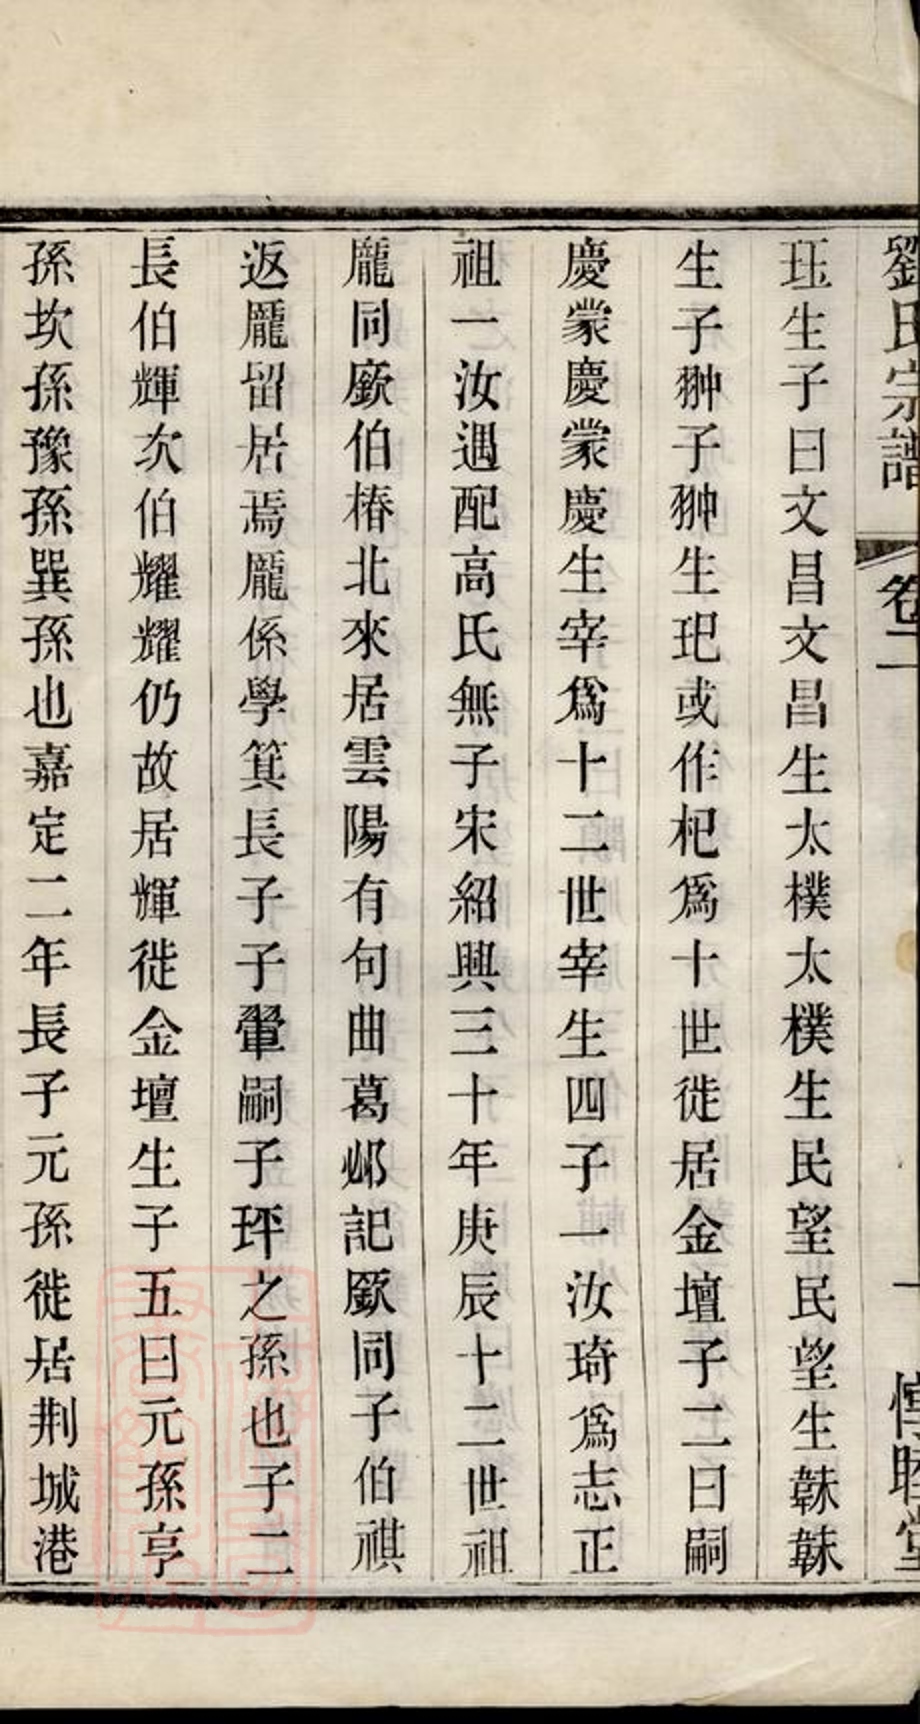 劉氏宗譜 卷二 一 惇睦堂
珏生子曰文昌文昌生太樸太樸生民望民望生韎韎
生子翀子翀生玘或作杞爲十世徙居金壇子二曰嗣
慶蒙慶蒙慶生宰爲十二世宰生四子一汝琦爲志正
祖一汝遇配高氏無子宋紹興三十年庚辰十二世祖
龐同厥伯椿北來居雲陽有句曲葛邲記厥同子伯祺
返龐留居焉龐係學箕長子子翬嗣子玶之孫也子二
長伯輝次伯耀耀仍故居輝徙金壇生子五曰元孫亨
孫坎孫豫孫巽孫也嘉定二年長子元孫徙居荆城港